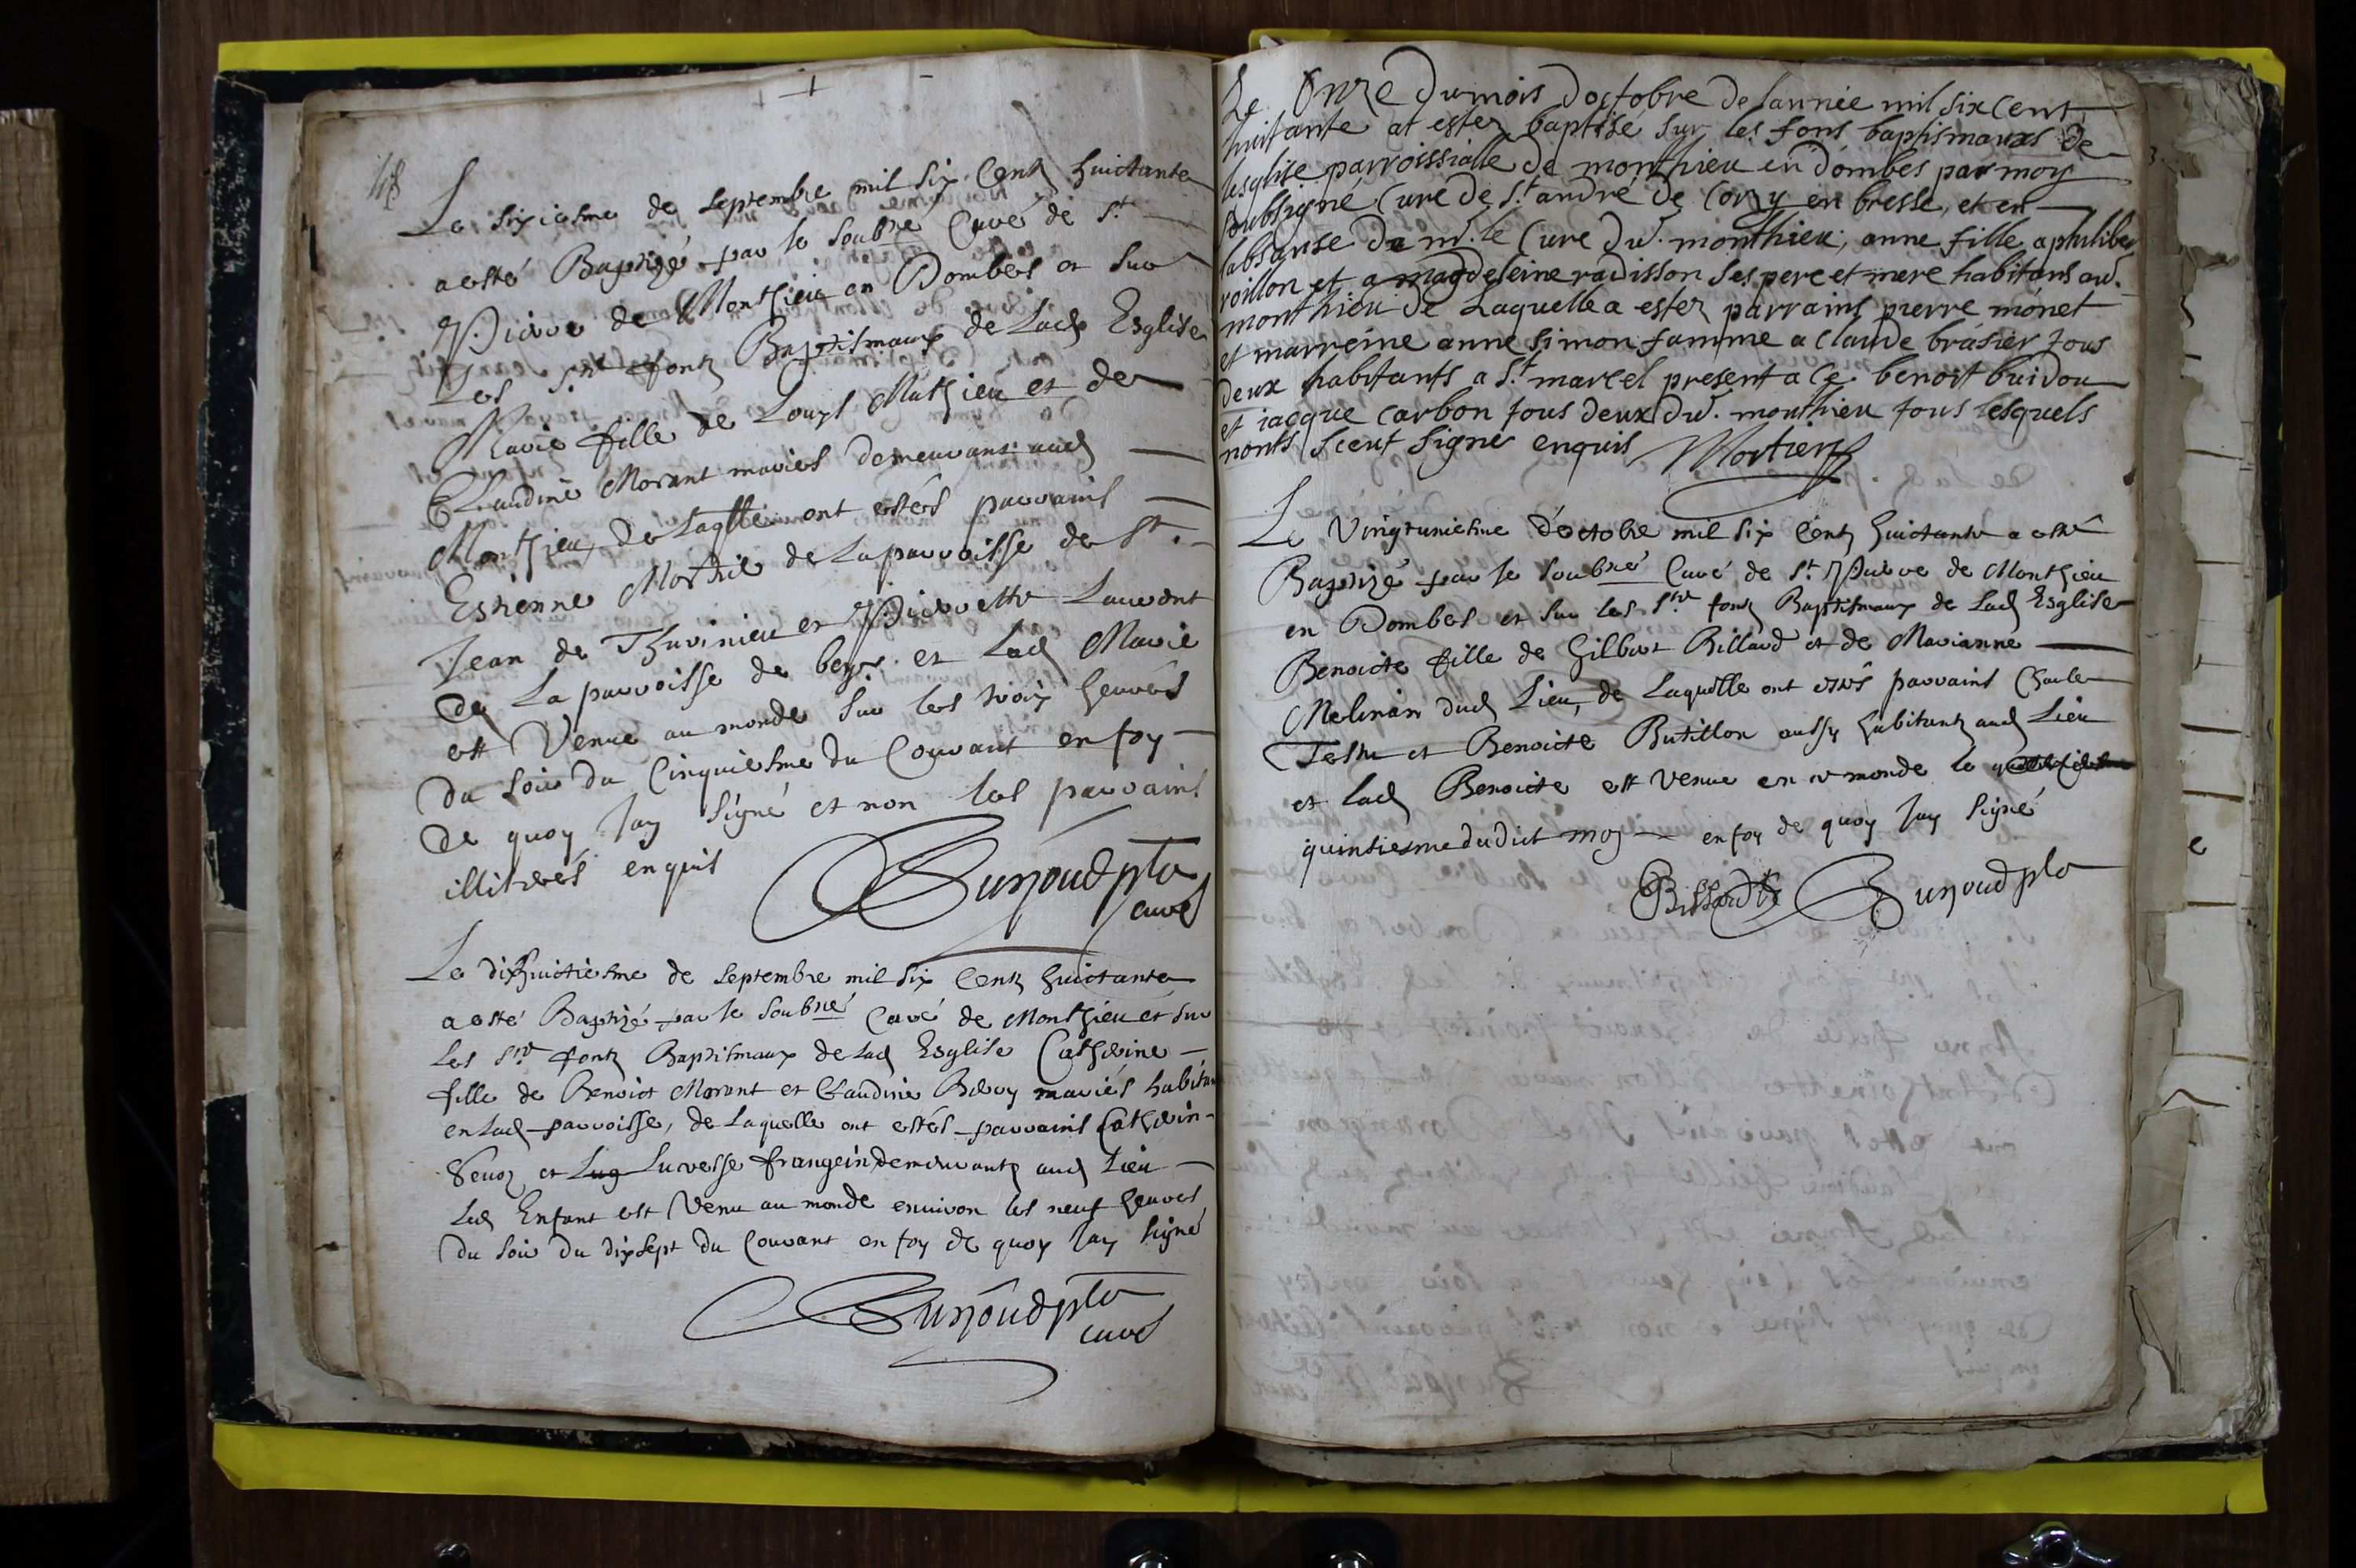 Le sixiesme de septembre mil six Centz huictante
a esté Baptizé par le soubné Curé de St
Pierre de Monthieu en Dombes et sur
Les Sts fontz Baptismaux de Lade Esglise
Marie fille de Louys Mathieu et de
Claudine Morant mariés demeurans aud
Monthieu, de Laqlle ont estés parrains
Estienne de La parroisse de St.
Jean de Thurinieu et Pierrette Laurent
de La parroisse de et Lad Marie
est Venue au monde sur les trois heures
du soir du Cinquiesme du Courant en foy
de quoy Jay signé et non les parrains
illiterés enquis
curé
Le dixhuictiesme de septembre mil six Centz huictante
a esté Baptizé par le soubné Curé de Monthieu et sur
les Sts fontz Baptismaux de Lad Esglise Catherine
fille de Benoict Morant et Claudine mariés habitan
en Lad parroisse, de Laquelle ont estés parrains Catherin
et Lucresse frangein demeurantz aud Lieu
Led Enfant est Venu au monde environ les neuf heures
du soir du dixsept du Courant en foy de quoy Jay signé
curé
Le Onze du mois doctobre de lannée mil six cent
huitante at ester baptisé sur les fons baptismauxs de
lesglise parroissialle de monthieu en dombes par moy
soubsigné Curé de St andré de Corzy en bresse, et en
labsanse de mr. le Curé dud. monthieu, anne fille a philiber
roillon et a magdeleine radisson ses pere et mere habitans aud.
monthieu de Laquelle a ester parrains pierre monet
et marreine anne simon famme a claude brasier tous
deux habitants a St marcel present a ce benoit buidon
et iacque carbon tous deux dud. monthieu tous lesquels
nonts sceut signer enquis Mortier
Le Vingtuniesme d'octobre mil six Centz huictante a esté
Baptizé par le soubné Curé de St Pierre de Monthieu
en Dombes et sur les Sts fontz Baptismaux de Lad Esglise
Benoicte fille de Gilbert Billard et de Marianne
Melinan dud Lieu, de Laquelle ont estés parrains Charle
Testu et Benoicte Butillon aussy habitantz aud Lieu
et Lad Benoicte est Venue en ce monde le
quinsiesme dudict moy en foy de quoy Jay signé
Billard